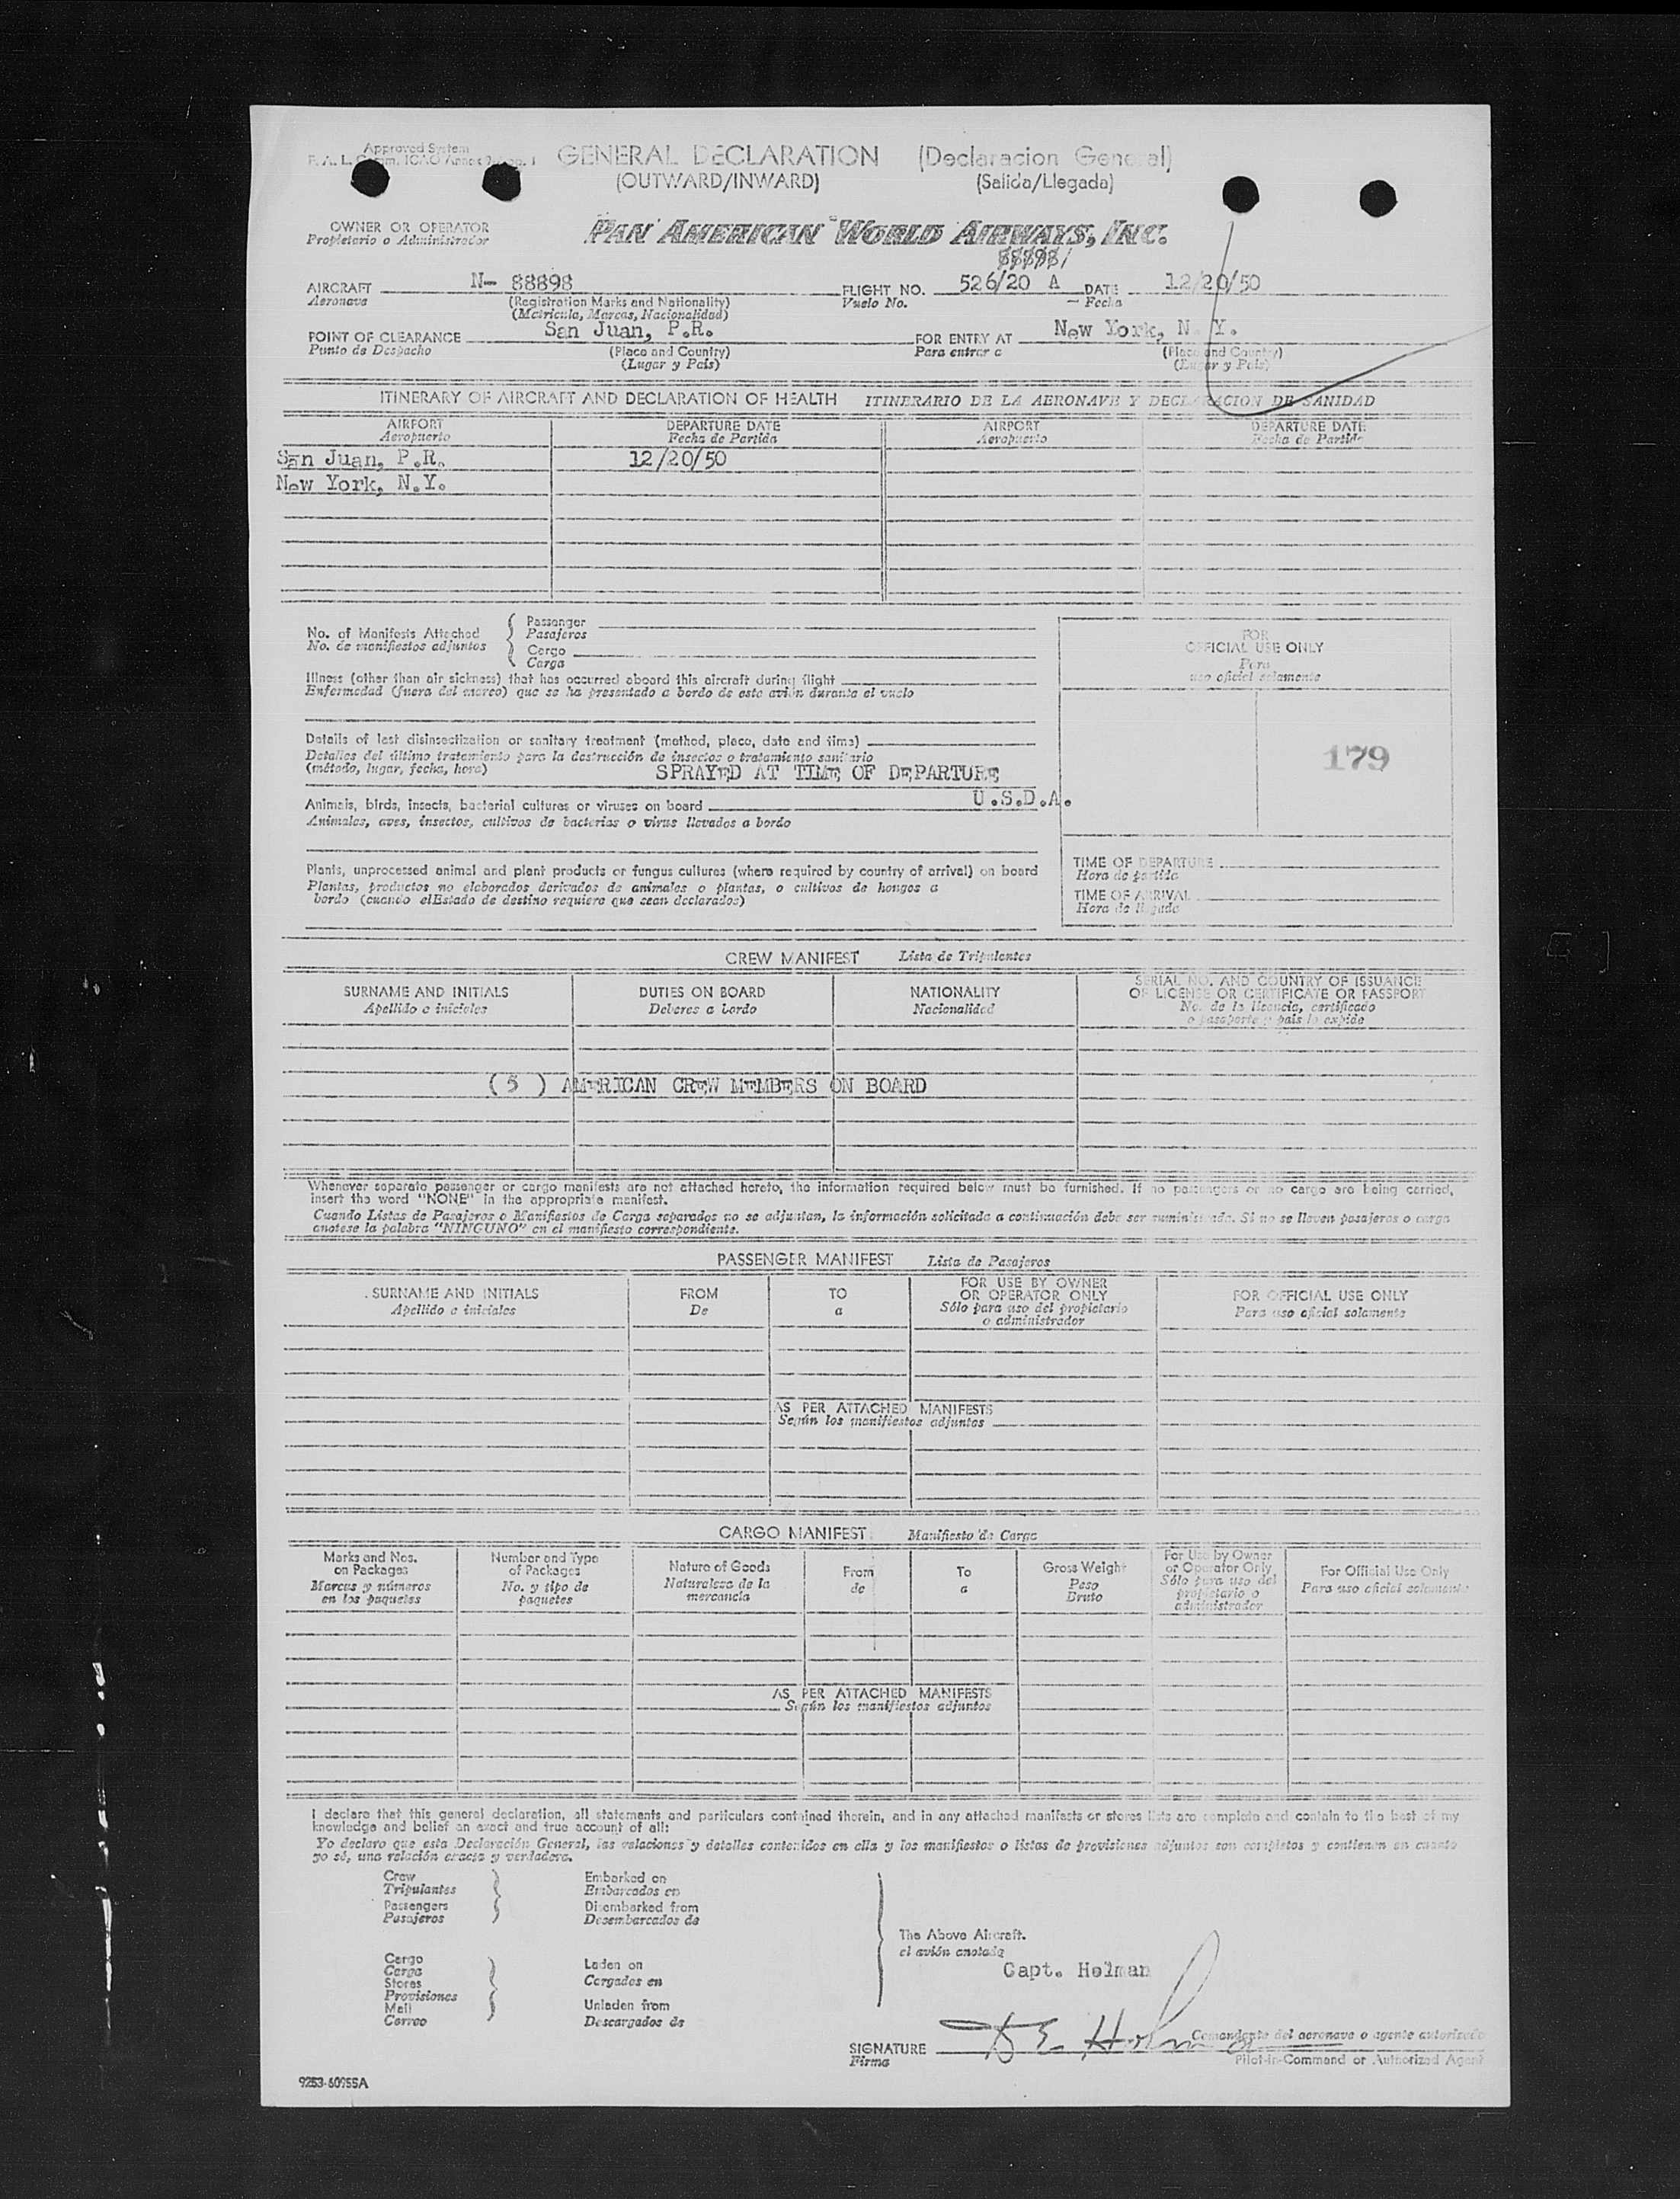 Approved System
GENERAL DECLARATION (Declaracion General)
(OUTWARD/INWARD) (Salida/Llegada)
OWNER OR OPERATOR
Propietario o Administrador
PAN AMERICAN WORLD AIRWAYS, INC.
AIRCRAFT N- 88898 FLIGHT NO. 526/20 A DATE 12/20/50
Aeronave (Registration Marks and Nationality) Vuelo No. Fecha
(Matricula, Marcas, Nacionalidad)
POINT OF CLEARANCE San Juan, P.R. FOR ENTRY AT New York, N.Y.
Punto de Despacho (Place and Country) Para entrar a (Place and Country)
(Lugar y País) (Lugar y País)
ITINERARY OF AIRCRAFT AND DECLARATION OF HEALTH ITINERARIO DE LA AERONAVE Y DECLARACION DE SANIDAD
AIRPORT DEPARTURE DATE AIRPORT DEPARTURE DATE
Aeropuerto Fecha de Partida Aeropuerto Fecha de Partida
San Juan, P.R. 12/20/50
New York, N.Y.
No. of Manifests Attached
No. de manifiestos adjuntos
Passenger
Pasajeros
Cargo
Carga
Illness (other than air sickness) that has occurred aboard this aircraft during flight
Enfermedad (fuera del mareo) que se ha presentado a bordo de este avión durante el vuelo
Details of last disinsectization or sanitary treatment (method, place, date and time)
Detalles del último tratamiento para la destrucción de insectos o tratamiento sanitario
(método, lugar, fecha, hora) SPRAYED AT TIME OF DEPARTURE
U.S.D.A.
Animals, birds, insects, bacterial cultures or viruses on board
Animales, aves, insectos, cultivos de bacterias o virus llevados a bordo
Plants, unprocessed animal and plant products or fungus cultures (where required by country of arrival) on board
Plantas, productos no elaborados derivados de animales o plantas, o cultivos de hongos a
bordo (cuando elEstado de destino requiere que sean declarados)
FOR
OFFICIAL USE ONLY
Para
uso oficial solamente
179
TIME OF DEPARTURE
Hora de partida
TIME OF ARRIVAL
Hora de llegada
CREW MANIFEST Lista de Tripulantes
SURNAME AND INITIALS DUTIES ON BOARD NATIONALITY SERIAL NO. AND COUNTRY OF ISSUANCE
OF LICENSE OR CERTIFICATE OR PASSPORT
Apellido e iniciales Deberes a bordo Nacionalidad No. de la licencia, certificado
o pasaporte y país lo expide
( 5 ) AMERICAN CREW MEMBERS ON BOARD
Whenever separate passenger or cargo manifests are not attached hereto, the information required below must be furnished. If no passengers or no cargo are being carried,
insert the word "NONE" in the appropriate manifest.
Cuando Listas de Pasajeros o Manifiestos de Carga separados no se adjuntan, la información solicitada a continuación debe ser suministrada. Si no se lleven pasajeros o carga
anotese la palabra "NINGUNO" en el manifiesto correspondiente.
PASSENGER MANIFEST Lista de Pasajeros
SURNAME AND INITIALS FROM TO FOR USE BY OWNER
OR OPERATOR ONLY FOR OFFICIAL USE ONLY
Apellido e iniciales De a Sólo para uso del propietario
o administrador Para uso oficial solamente
AS PER ATTACHED MANIFESTS
Según los manifiestos adjuntos
CARGO MANIFEST Manifiesto de Carga
Marks and Nos.
on Packages
Marcas y números
en los paquetes
Number and Type
of Packages
No. y tipo de
paquetes
Nature of Goods
Naturaleza de la
mercancía
From
de
To
a
Gross Weight
Peso
Bruto
For Use by Owner
or Operator Only
Sólo para uso del
propietario o
administrador
For Official Use Only
Para uso oficial solamente
AS PER ATTACHED MANIFESTS
Según los manifiestos adjuntos
I declare that this general declaration, all statements and particulars contained therein, and in any attached manifests or stores lists are complete and contain to the best of my
knowledge and belief an exact and true account of all:
Yo declaro que esta Declaración General, las relaciones y detalles contenidos en ella y los manifiestos o listas de provisiones adjuntos son completos y contienen en cuanto
yo sé, una relación exacta y verdadera.
Crew
Tripulantes
Passengers
Pasajeros
Embarked on
Embarcados en
Disembarked from
Desembarcados de
Cargo
Carga
Stores
Provisiones
Mail
Correo
Laden on
Cargados en
Unladen from
Descargados de
The Above Aircraft.
el avión anotado
Capt. Holman
SIGNATURE D E Holman
Firma
Comandante del aeronave o agente autorizado
Pilot-in-Command or Authorized Agent
9253-60955A